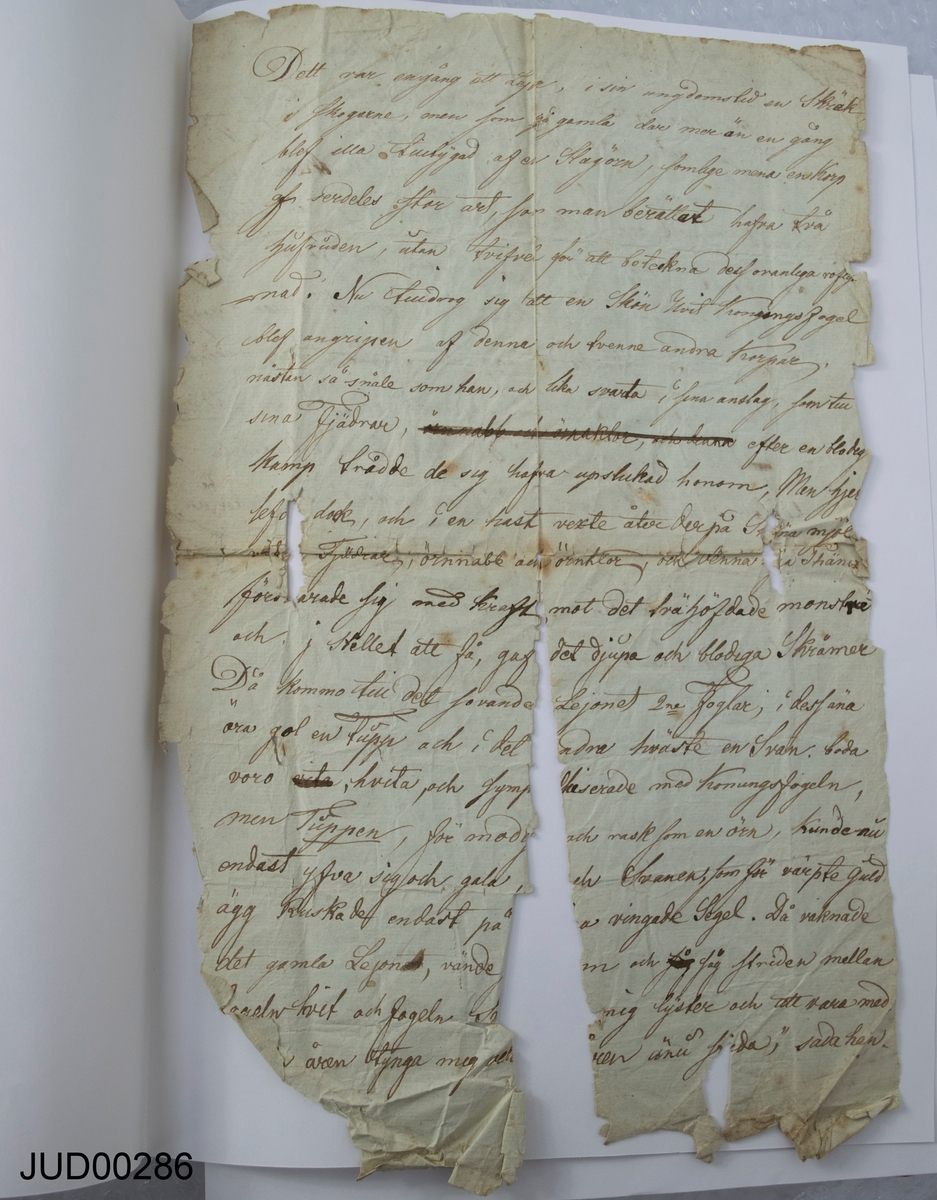 Dett var engång ett Lejo, i sin ungdomstid en Skräk
i skogerne, men som på gamla dar mer än en gång
blef illa tilltygad af en Slagörn, somlige mena en korp
af serdeles stor art, som man berättat hafva två
hufvuden, utan tvifvel för att beteckna dess ovanliga
nad. Nu tilldrog sig att en Skön Hvit Konungsfogel
blef angripen af denna och tvenne andra korpar,
nästan så snåle som han, och lika svarta i sina anslag, som till
sina Fjädrar, örnnabb och örnklor, och denna efter en blodig
kamp trodde de sig hafva upslukad honom, Men
lefd dock, och i en hast vexte åter derpå
Fjädrar, örnnabb och örnklor, och denna
försvarade sig med kraft mot det tvåhöfdade monstra
och i stellet att få, gaf det djupa och blodiga Skråmer
Då kommo till det sovande Lejonet 2ne Foglar; i dess ena
öra gol en Tupp och i det andra hväste en Svan. båda
voro vita, hvita, och symp thiserade med Konungsfogeln,
men Tuppen, för modig och rask som en örn, kunde nu
endast yfva sig och gala, ch Svanen, som för värpte Guld
ägg kruskade endast på a vingade Segel. Då vaknade
det gamla Lejonet, vände m och såg såg striden mellan
fogeln hvit och fogeln mig lyster och att vara med
åren tynga mig ren ännu sida," sade han.
JUD00286